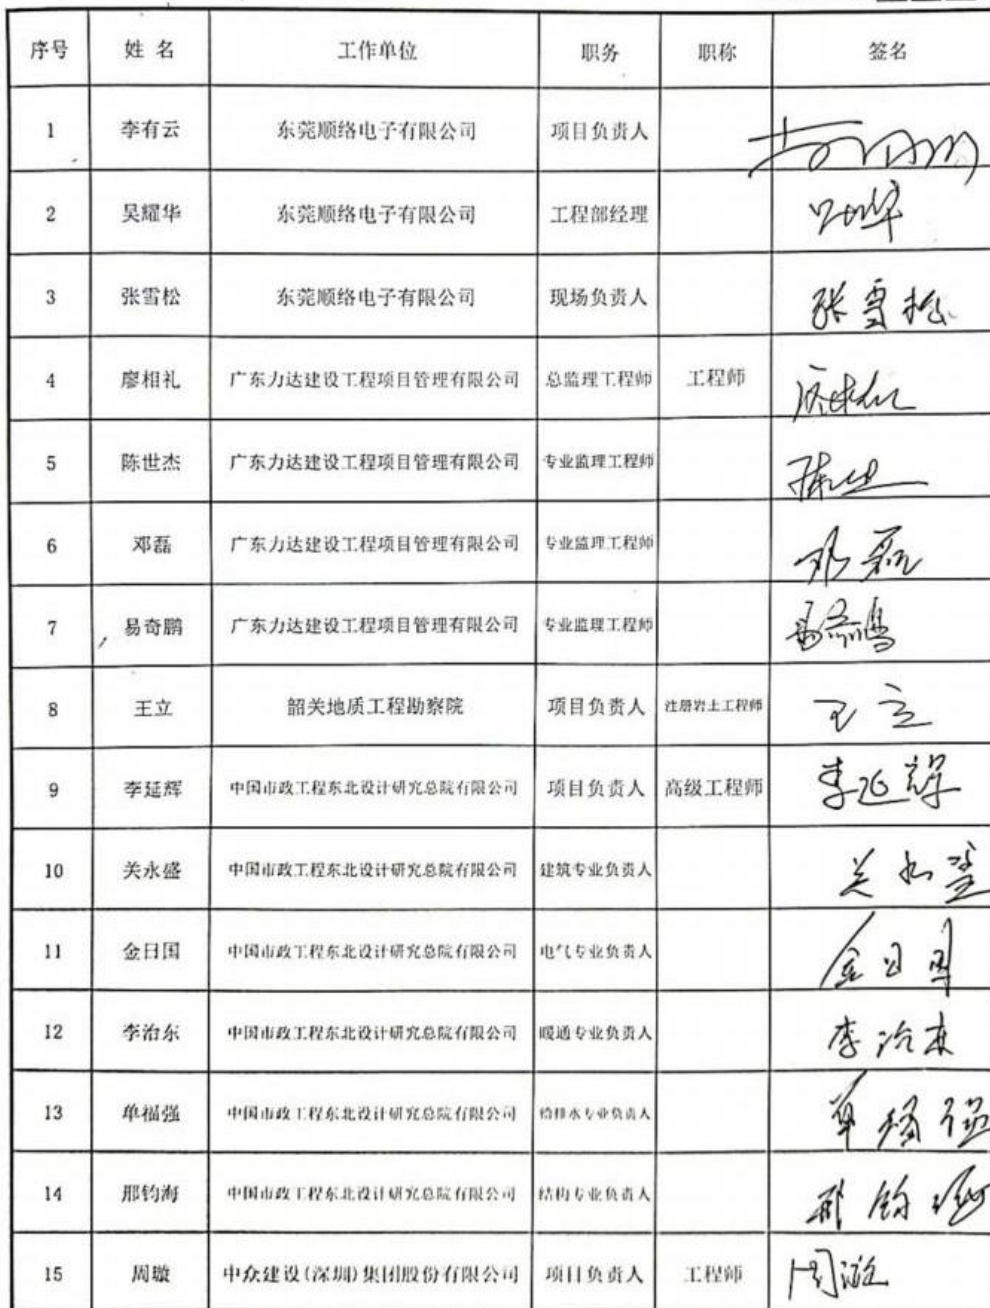 序号 姓名 工作单位 职务 职称 签名
1 李有云 东莞顺络电子有限公司 项目负责人
2 吴耀华 东莞顺络电子有限公司 工程部经理
3 张雪松 东莞顺络电子有限公司 现场负责人 张雪松
4 廖相礼 广东力达建设工程项目管理有限公司 总监理工程师 工程师
5 陈世杰 广东力达建设工程项目管理有限公司 专业监理工程师
6 邓磊 广东力达建设工程项目管理有限公司 专业监理工程师 邓磊
7 易奇鹏 广东力达建设工程项目管理有限公司 专业监理工程师 易奇鹏
8 王立 韶关地质工程勘察院 项目负责人 注册岩土工程师 王立
9 李延辉 中国市政工程东北设计研究总院有限公司 项目负责人 高级工程师 李延辉
10 关永盛 中国市政工程东北设计研究总院有限公司 建筑专业负责人 关永盛
11 金日国 中国市政工程东北设计研究总院有限公司 电气专业负责人 金日国
12 李治东 中国市政工程东北设计研究总院有限公司 暖通专业负责人 李治东
13 单福强 中国市政工程东北设计研究总院有限公司 给排水专业负责人 单福强
14 邢钧海 中国市政工程东北设计研究总院有限公司 结构专业负责人 邢钧海
15 周璇 中众建设(深圳)集团股份有限公司 项目负责人 工程师 周璇